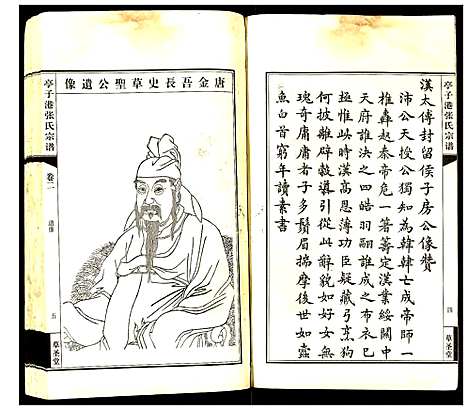 漢太傅封留侯子房公像贊
沛公天授公獨知為韓韓亡成帝師一
椎轟起秦帝危一著籌定漢業綏關中
天府誰決之四皓羽翮誰成之布衣已
極惟此時漢高恩薄功臣疑藏弓烹狗
何披辟穀導引從此辭貌如婦人實魁
瑰奇磊落者子多鬚眉揣摩後世如蠹
魚白首窮年讀素書
亭子港张氏宗谱
四
草圣堂
唐金吾長史草聖公遺像
亭子港张氏宗谱
卷二
遗像
五
草圣堂